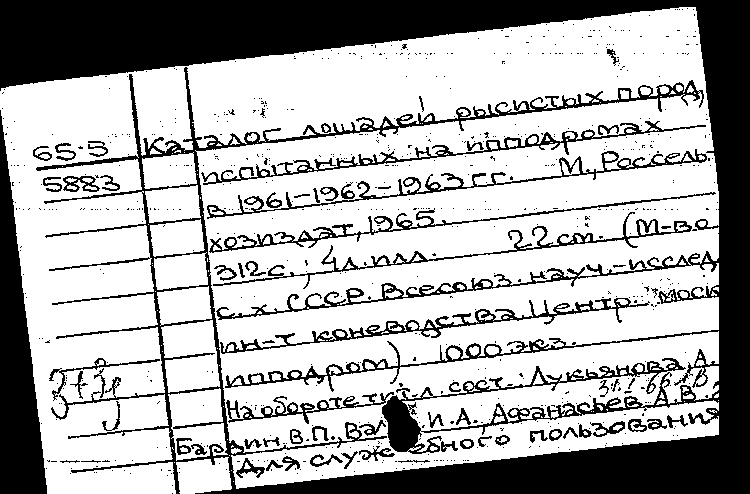 65-5 Каталог лошадей рысистых пород,
5883 испытанных на ипподромах
в 1961-1962-1963 гг. М., Россель-
хозиздат, 1965.
312 с.; 4 л. илл. 22 см. (М-во
с. х. СССР. Всесоюз. науч.-исслед.
ин-т коневодства Центр. моск
ипподром). 1000 экз.
3+3д
На обороте тит. л. сост.: Лукьянова, А.
Бардин, В.П., И.А., Афанасьев, А.В.
Для служебного пользования